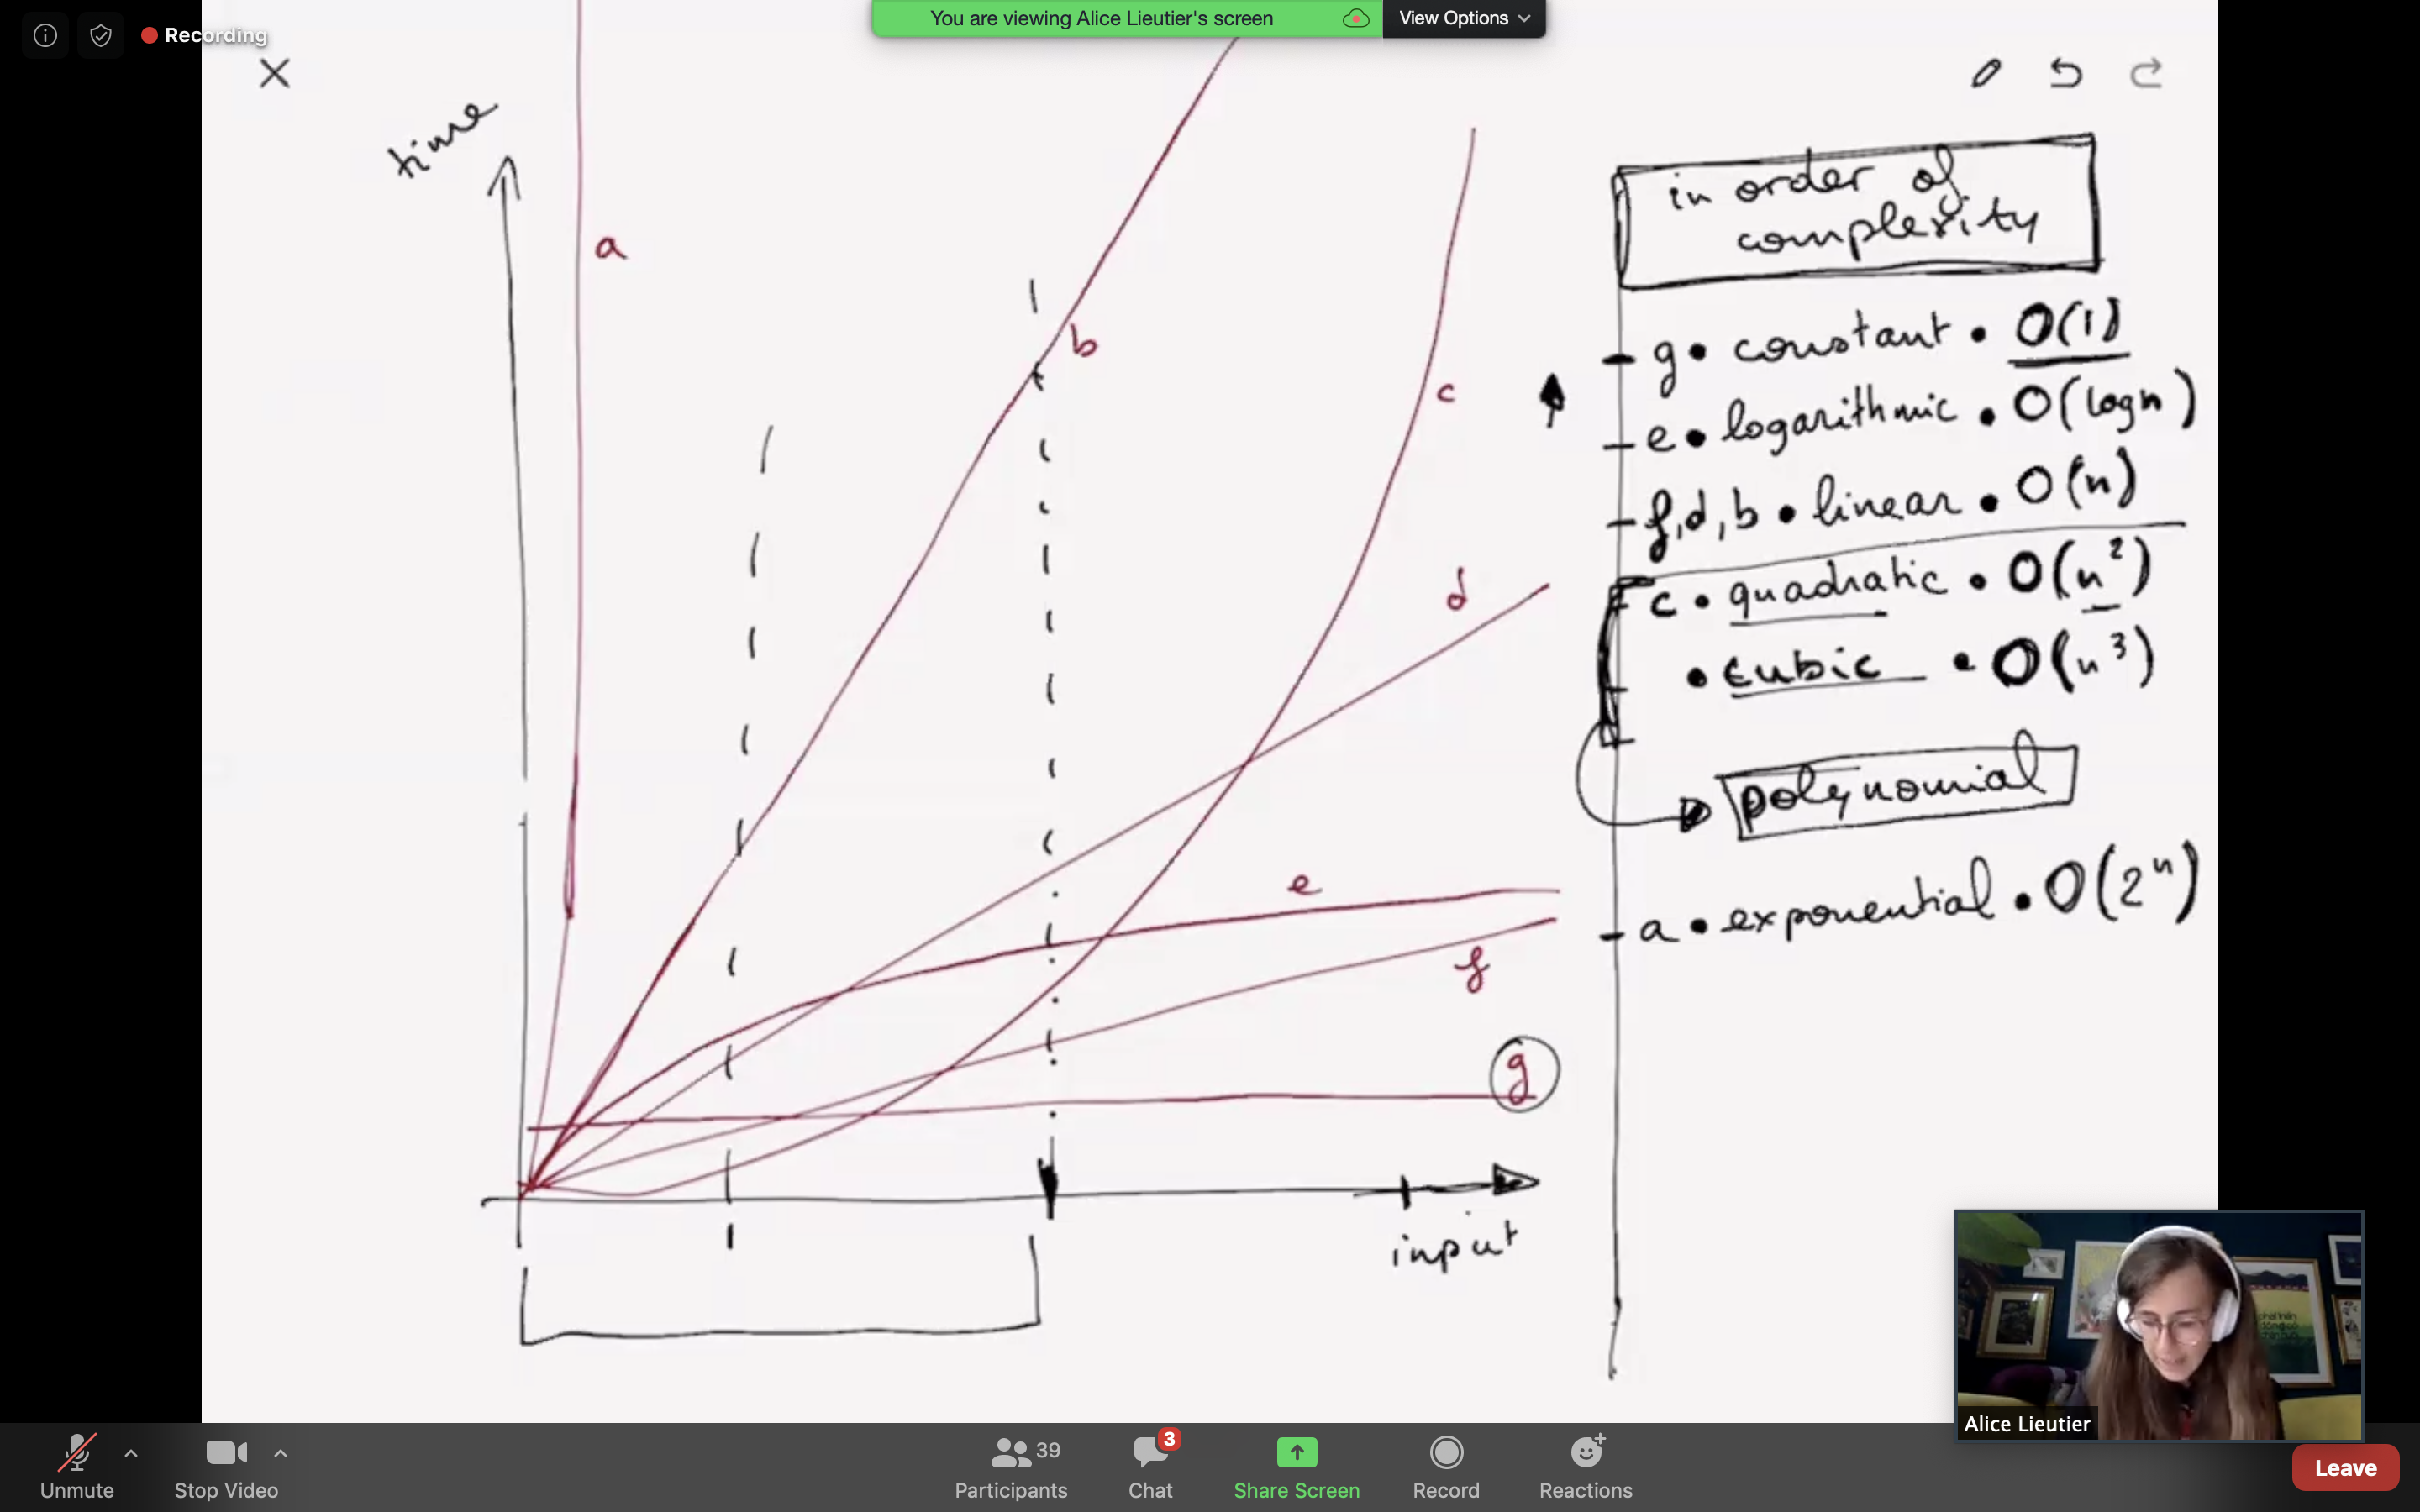 You are viewing Alice Lieutier's screen
View Options
Recording
time
a
b
c
d
e
f
g
input
in order of
complexity
g • constant • O(1)
e • logarithmic • O(log n)
f, d, b • linear • O(n)
c • quadratic • O(n²)
• cubic • O(n³)
polynomial
a • exponential • O(2ⁿ)
Alice Lieutier
Unmute
Stop Video
39
Participants
3
Chat
Share Screen
Record
Reactions
Leave